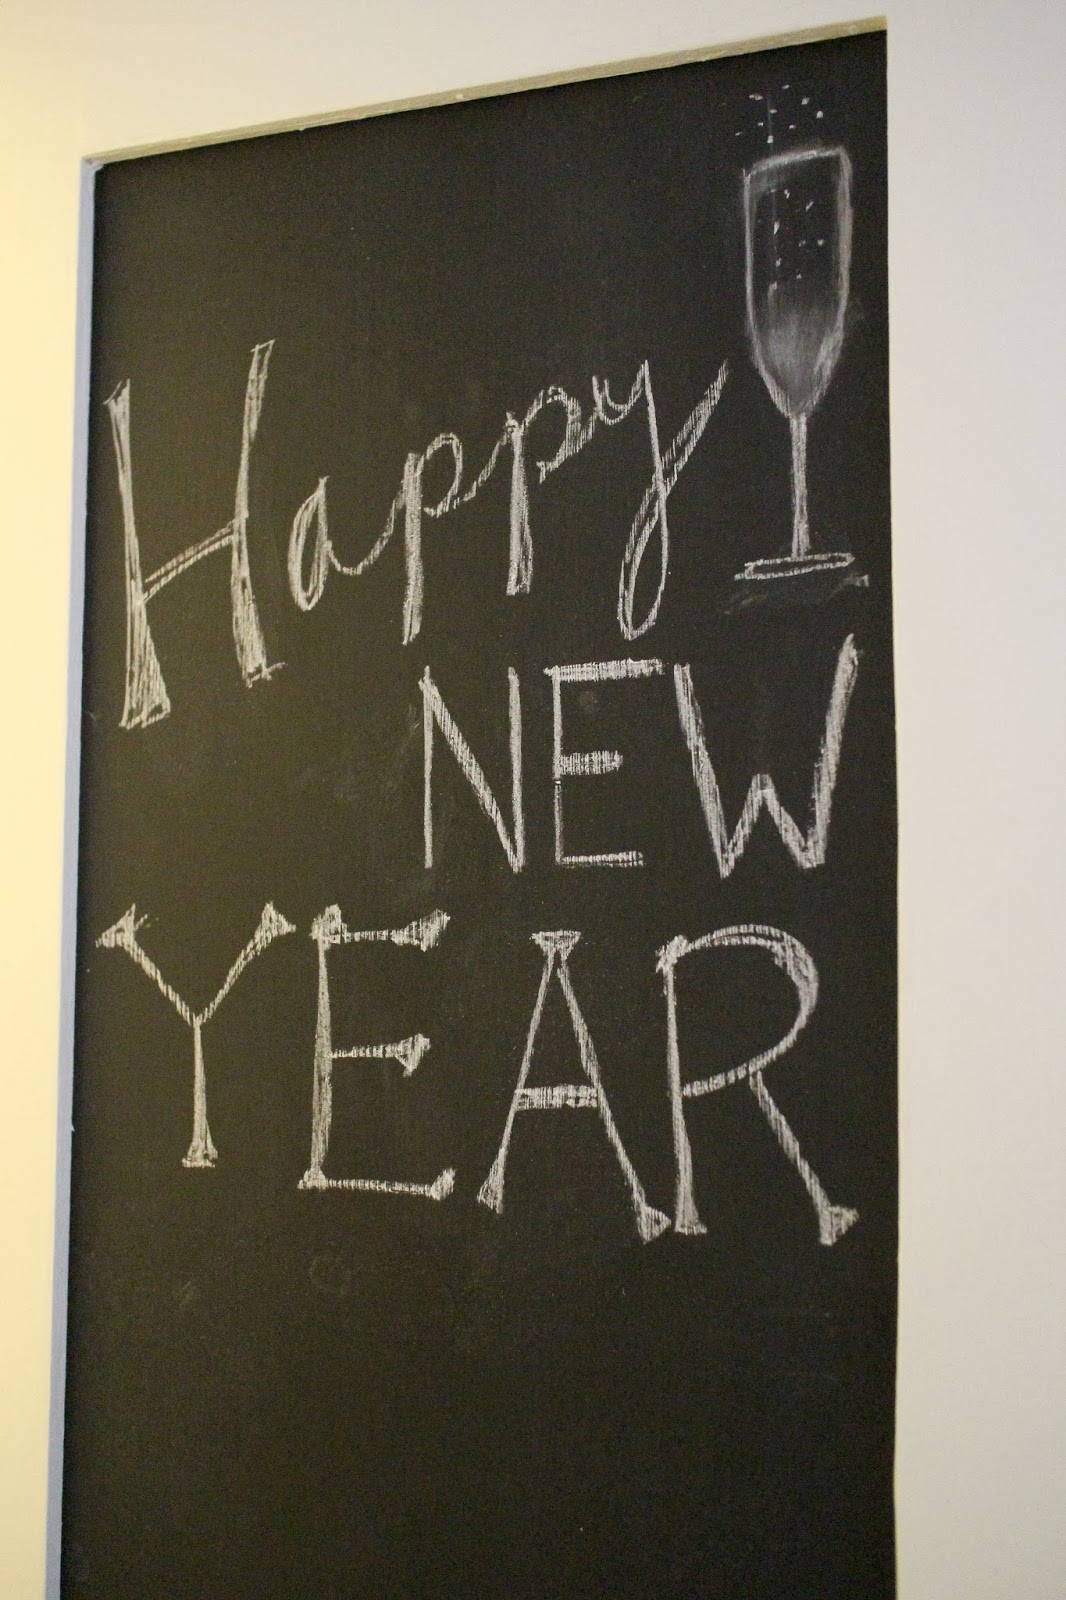 Happy
NEW
YEAR